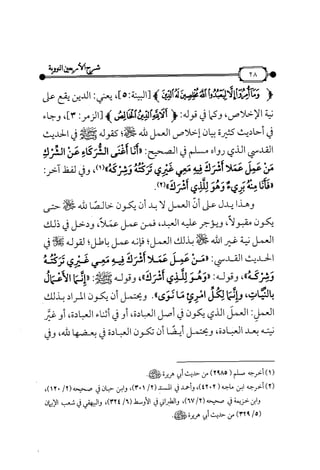 شرح الأربعين النووية
٢٨
﴿وَمَا أُمِرُوا إِلَّا لِيَعْبُدُوا اللَّهَ مُخْلِصِينَ لَهُ الدِّينَ﴾ [البينة: ٥]، يعني: الدين يقع على
نية الإخلاص، وكما في قوله: ﴿أَلَا لِلَّهِ الدِّينُ الْخَالِصُ﴾ [الزمر: ٣]، وجاء
في أحاديث كثيرة بيان إخلاص العمل لله ﷻ؛ كقوله ﷺ في الحديث
القدسي الذي رواه مسلم في الصحيح: «أَنَا أَغْنَى الشُّرَكَاءِ عَنِ الشِّرْكِ
مَنْ عَمِلَ عَمَلًا أَشْرَكَ فِيهِ مَعِي غَيْرِي تَرَكْتُهُ وَشِرْكَهُ»(١)، وفي لفظ آخر:
«فَأَنَا مِنْهُ بَرِيءٌ وَهُوَ لِلَّذِي أَشْرَكَ»(٢).
وهذا يدل على أن العمل لا بد أن يكون خالصًا لله ﷻ حتى
يكون مقبولًا، ويؤجر عليه العبد، فمن عمل عملًا، ودخل في ذلك
العمل نية غير الله ﷻ بذلك العمل؛ فإنه عمل باطل؛ لقوله في
الحديث القدسي: «مَنْ عَمِلَ عَمَلًا أَشْرَكَ فِيهِ مَعِي غَيْرِي تَرَكْتُهُ
وَشِرْكَهُ»، وقوله: «وَهُوَ لِلَّذِي أَشْرَكَ»، وقوله ﷺ: «إِنَّمَا الأَعْمَالُ
بِالنِّيَّاتِ، وَإِنَّمَا لِكُلِّ امْرِئٍ مَا نَوَى». ويحتمل أن يكون المراد بذلك
العمل: العمل الذي يكون في أصل العبادة، أو في أثناء العبادة، أو غيَّر
نيته بعد العبادة، ويحتمل أيضًا أن تكون العبادة في بعضها لله، وفي
(١) أخرجه مسلم (٢٩٨٥) من حديث أبي هريرة ﷺ.
(٢) أخرجه ابن ماجه (٤٢٠٢)، وأحمد في المسند (٢/ ٣٠١)، وابن حبان في صحيحه (٢/ ١٢٠)،
وابن خزيمة في صحيحه (٢/ ٦٧)، والطبراني في الأوسط (٦/ ٣٢٤)، والبيهقي في شعب الإيمان
(٥/ ٣٢٩) من حديث أبي هريرة ﷺ.